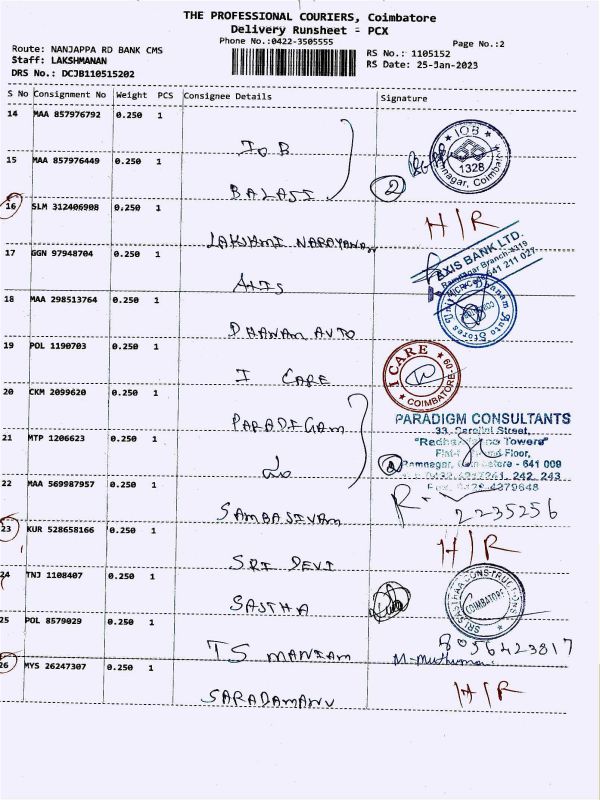 THE PROFESSIONAL COURIERS, Coimbatore
Delivery Runsheet - PCX
Phone No.:0422-3505555
Page No.:2
Route: NANJAPPA RD BANK CMS
Staff: LAKSHMANAN
DRS No.: DCJB110515202
RS No.: 1105152
RS Date: 25-Jan-2023
S No Consignment No Weight PCS Consignee Details Signature
14 MAA 857976792 0.250 1
IOB
IOB
1328
Ramnagar, Coimbatore
15 MAA 857976449 0.250 1
BALAJI
2
16 SLM 312406908 0.250 1
LAKSHMI NARAYANAN
H/R
17 GGN 97948704 0.250 1
AXIS
AXIS BANK LTD.
Ramnagar Branch-4319
MICR Code 641 211 027
18 MAA 298513764 0.250 1
DHANAM AUTO
Dhanam Auto Stores
19 POL 1190703 0.250 1
I CARE
I CARE
COIMBATORE-09
20 CKM 2099620 0.250 1
PARADIGAM
PARADIGM CONSULTANTS
33, Street,
Towers"
Floor,
Ramnagar, Coimbatore - 641 009
242, 243
4379648
21 MTP 1206623 0.250 1
Do
22 MAA 569987957 0.250 1
SAMBASIVAM
2235256
23 KUR 528658166 0.250 1
SRI DEVI
H/R
24 TNJ 1108407 0.250 1
SASTHA
SRI SASTHAA CONSTRUCTIONS
COIMBATORE
25 POL 8579029 0.250 1
TS MANIAM
8056423817
26 MYS 26247307 0.250 1
SARADAMANU
H/R